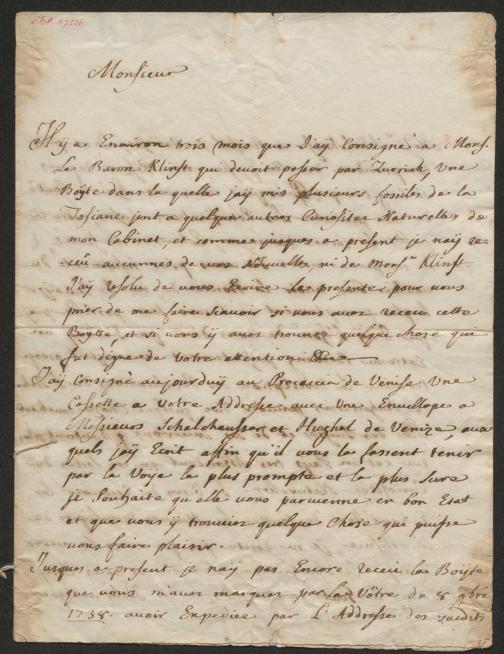 Monsieur
Il y a Environ trois mois que J'ay Consigné a Mons.
Le Baron Klinst qui devoit passer par Zurrick, Une
Boÿte dans la quelle jaÿ mis plusieurs fossiles de la
Toscane joint a quelques autres Curiosites Naturelles de
mon Cabinet, et comme jusques a present je naÿ re-
=ceü aucunnes de vos Nouvelles, ni de Monsr. Klinst
J'aÿ resolu de vous Ecrire la presente pour vous
prier de me faire scavoir si vous avez receu cette
Boÿtte, et si vous ÿ avez trouvé quelque chose qui
fut digne de Votre attention
J'aÿ consigné aujourduÿ au Procaccia de Venise Une
Cassette a Votre Addresse avec Une Envellope a
Messieurs Schalkhausser et Hughel de Venize, aux
quels j'aÿ Ecrit affin qu'il vous la fassent tenir
par la Voÿe la plus prompte et la plus Sure
je Souhaite qu'elle vous parvienne en bon Estat
et que vous ÿ trouviez quelque Chose qui puisse
vous faire plaisir.
Jusques a present je naÿ pas Encore receu la Boÿte
que vous m'avez marquez par la Vôtre du 8 9bre
1738. avoir Expediée par L'Addresse des sudits